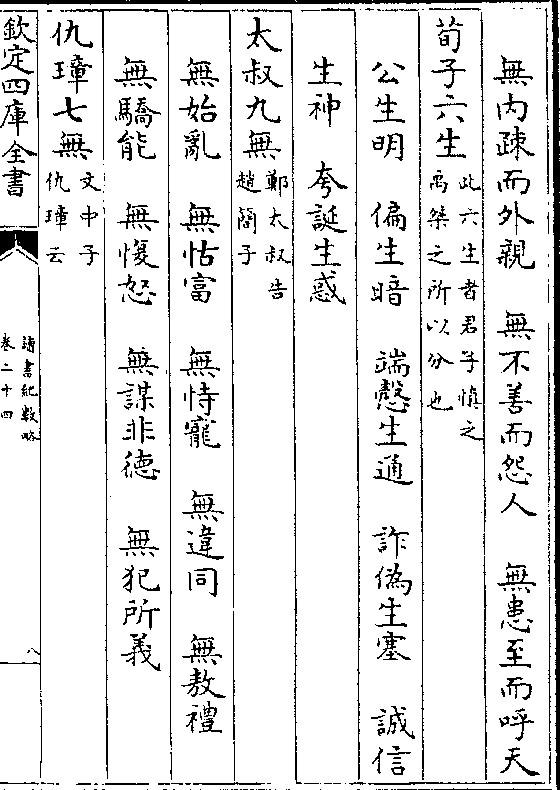 無内疎而外親　無不善而怨人　無患至而呼天
荀子六生此六生者君子慎之禹桀之所以分也
公生明　偏生暗　端慤生通　詐偽生塞　誠信
生神　夸誕生惑
太叔九無鄭太叔告趙簡子
無始亂　無怙富　無恃寵　無違同　無敖禮
無驕能　無復怒　無謀非德　無犯所義
仇璋七無文中子仇璋云
欽定四庫全書
讀書紀數略
卷二十四
八